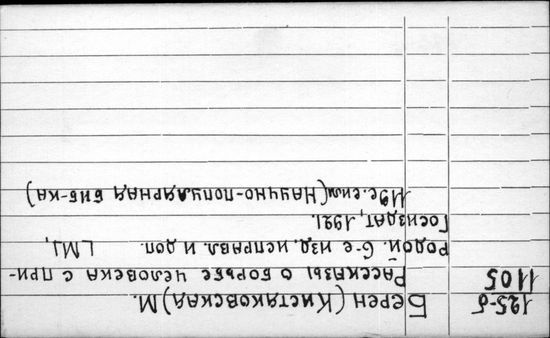 125-5
1105
Берен (Кистяковская) М.
Рассказы о борьбе человека с при-
родой. 6-е изд. исправл. и доп. LM1,
Госиздат, 1921.
119с. си илл (Научно-популярная биб-ка)